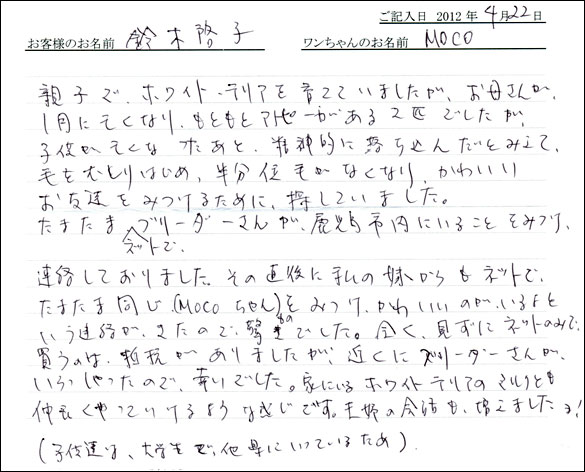 ご記入日 2012年 4月22日
お客様のお名前 鈴木啓子 ワンちゃんのお名前 MOCO
親子で、ホワイト・テリアを育てていましたが、お母さんが、
1月に亡くなり、もともとアトピーがある2匹でしたが、
子供が亡くなったあと、精神的に落ち込んだとみえて、
毛をむしりはじめ、半分位毛がなくなり、かわいい
お友達をみつけるために、探していました。
たまたまネットで、ブリーダーさんが、鹿児島市内にいることをみつけ、
連絡しておりました。その直後に私の妹からもネットで、
たまたま同じ(MOCOちゃん)をみつけ、かわいいのが、いるよと
いう連絡が、きたので、驚きものでした。全く、見ずにネットのみで、
買うのは、抵抗がありましたが、近くにブリーダーさんが、
いらっしゃったので、幸いでした。家にいるホワイトテリアのマルクとも
仲良くやっていけるような感じです。夫婦の会話も、増えましたョ!
(子供達は、大学生で、他県にいっているため)